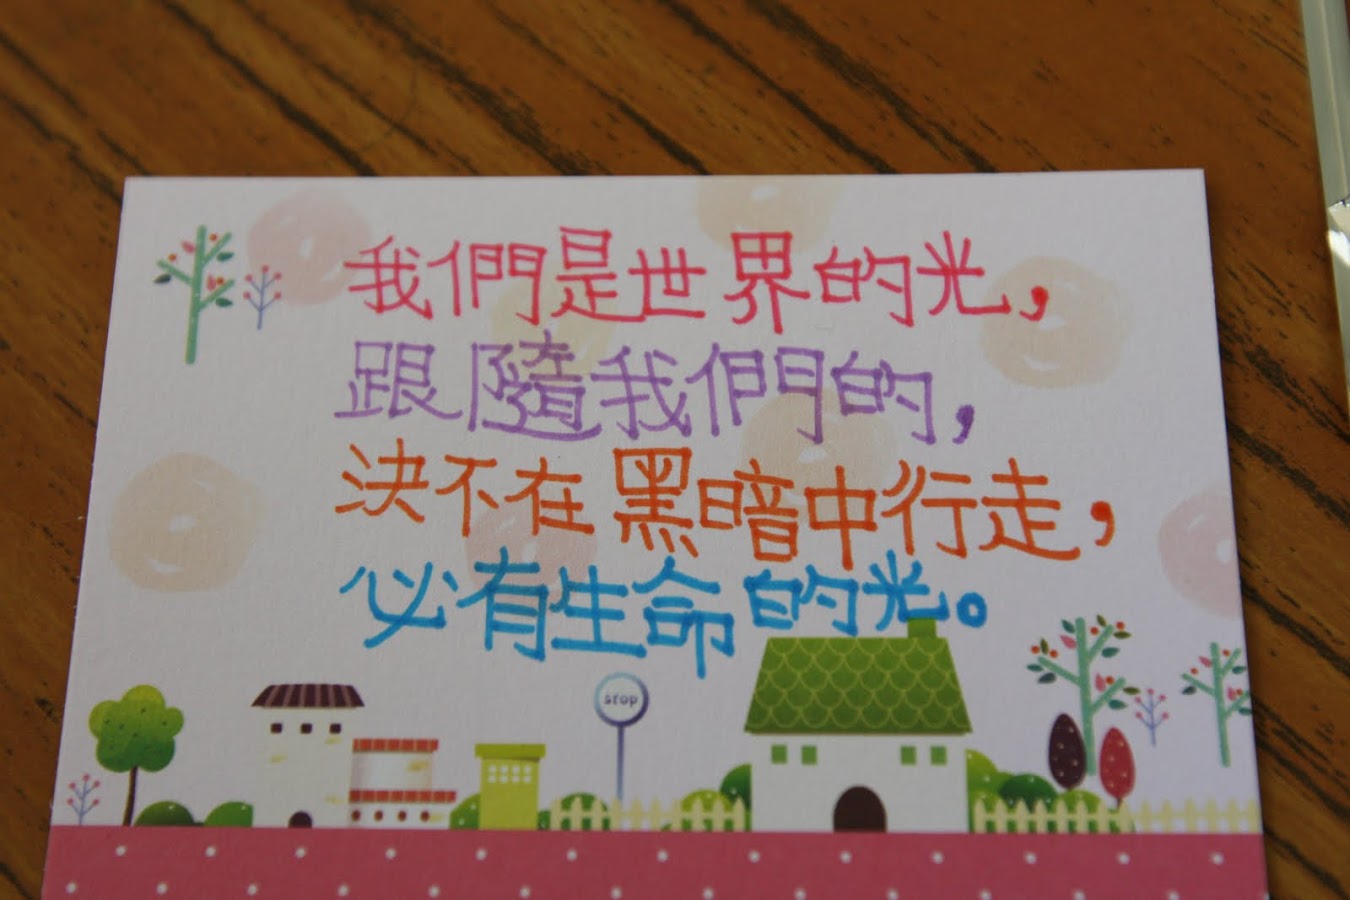 我們是世界的光，
跟隨我們的，
決不在黑暗中行走，
必有生命的光。
stop